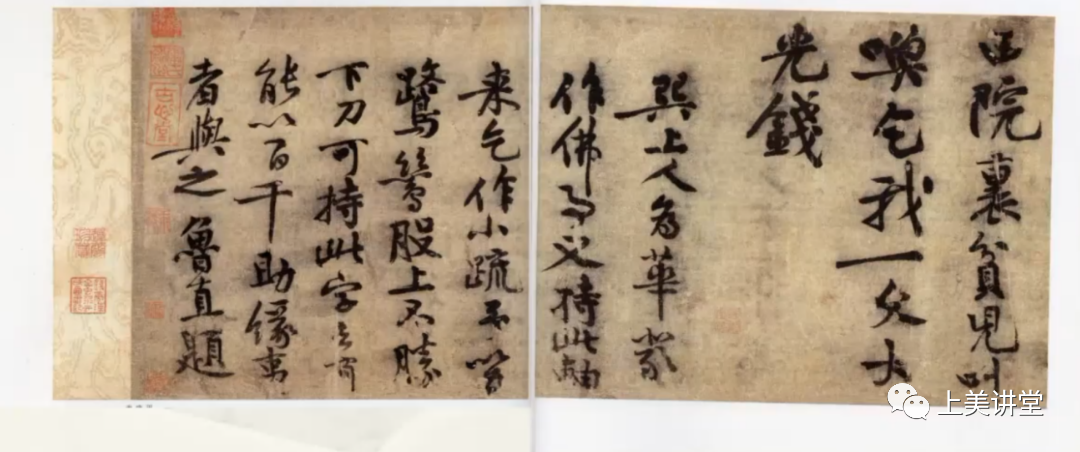 西院裏貧兒叫
喚乞我一文大
光錢
巽上人為華嚴
作佛事又持此軸
来乞作小疏
鷺鶿股上不勝
下刀可持此字
能以百千助緣
者與之魯直題
上美讲堂